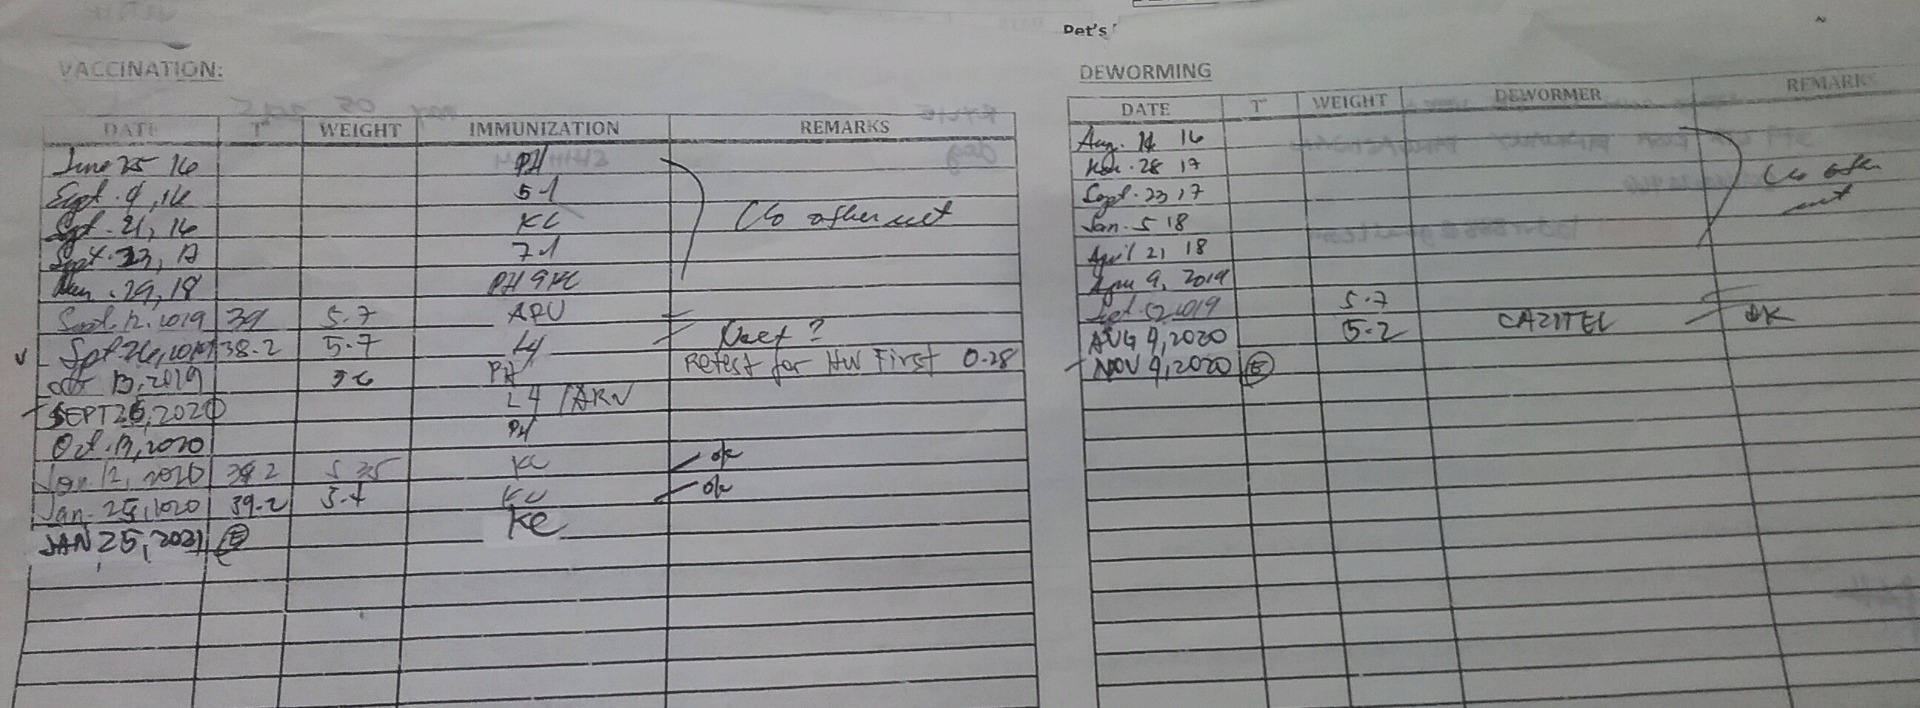 Pet's
VACCINATION:
DATE T° WEIGHT IMMUNIZATION REMARKS
June 25 16 PH
Sept. 9, 16 5-1
Spt. 21, 16 KC C/o other vet
Sept. 23, 17 7-1
29, 18 PH & KC
Sept. 12, 2019 39 5.7 ARV
Spt 26, 2019 38.2 5.7 L4 Next?
Oct 13, 2019 5.6 PH Retest for HW First 0.28
SEPT 26, 2020 L4 /ARV
Oct. 13, 2020 PH
Jan 12, 2020 39.2 5.35 KC ok
Jan. 25, 2020 39.2 5.7 KC ok
JAN 25, 2021 E KC
DEWORMING
DATE T° WEIGHT DEWORMER REMARK
Aug. 16
28 17 C/o other
Sept. 23 17 vet
Jan. 5 18
April 21 18
9, 2019
2019 5.7
AUG 9, 2020 5.2 CAZITEL OK
NOV 9, 2020 E